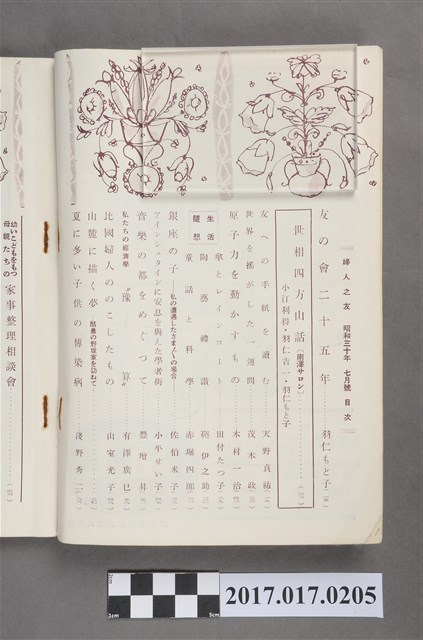 婦人之友 昭和三十年 七月號 目次
友の會二十五年 羽仁もと子
世相四方山話(南澤サロン)
小汀利得・羽仁吉一・羽仁もと子
友への手紙を讀む 天野貞祐
世界を搖がした一週間 茂木政
原子力を動かすもの 木村一治
生活隨想
傘とレインコート 田付たつ子
陶藝禮讃 鞆伊之助
童話と科學 赤堀四郎
銀座の子―私の遭遇したさまざまの場合 佐伯米子
アインシュタインに安息を與えた學者街 小平せい子
音樂の都をめぐつて 豊增昇
私たちの經濟學 “豫算” 有澤廣巳
比國婦人ののこしたもの 山室光子
山麓に描く夢 酪農の野坂家を訪ねて
夏に多い子供の傳染病 淺野秀二
幼いこどもをもつ母親たちの 家事整理相談會
2cm
5cm
2017.017.0205